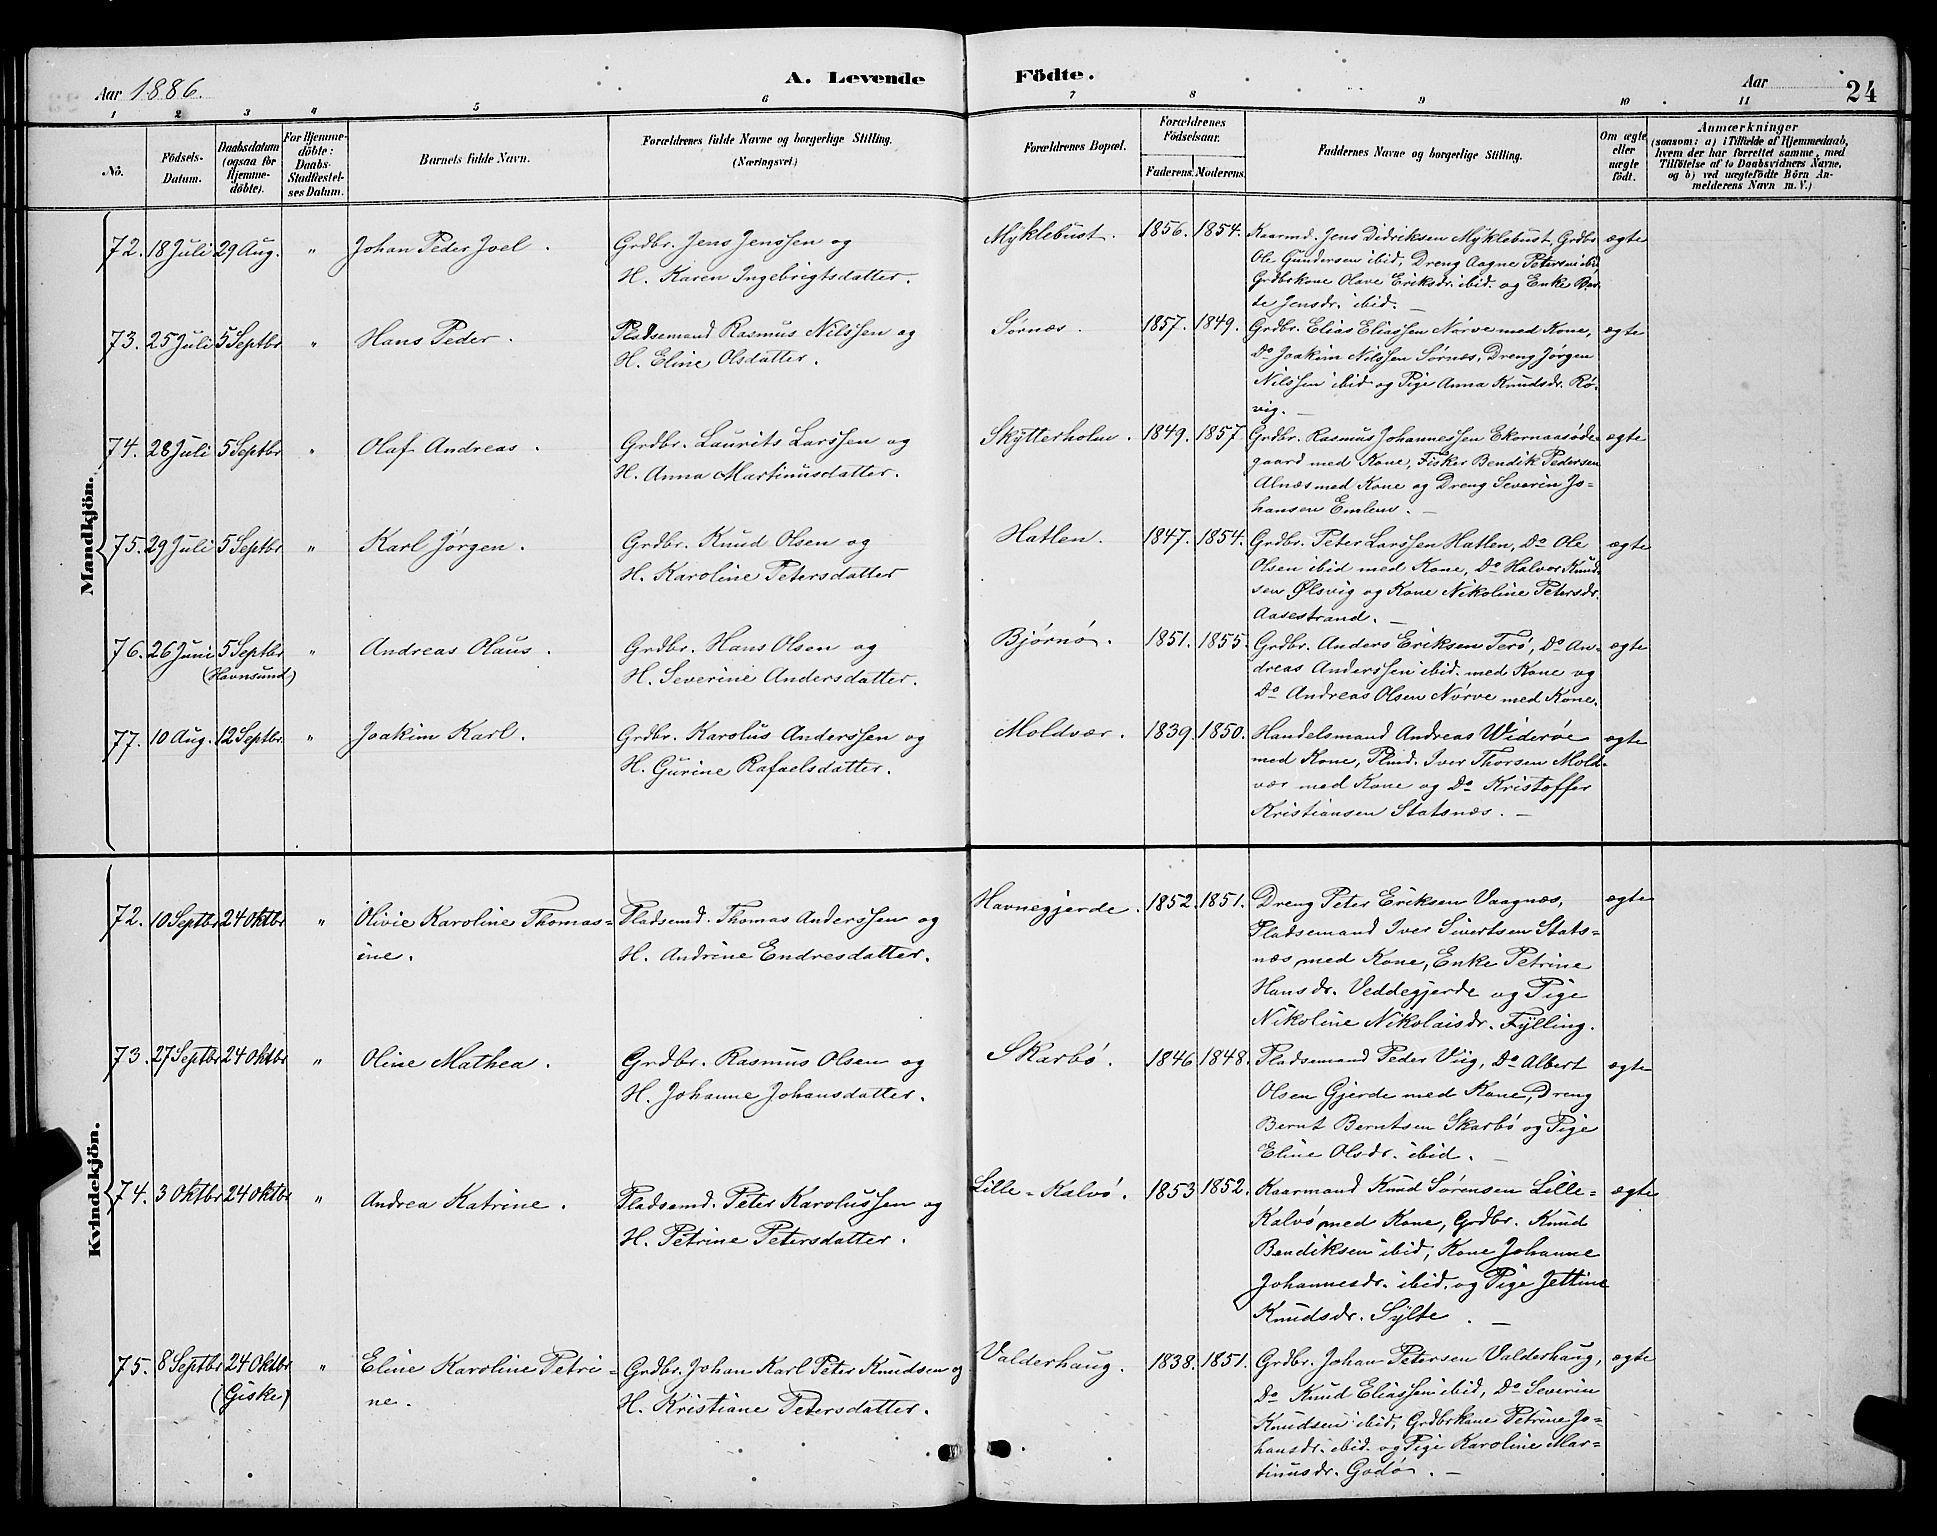 Aar 1886.
A. Levende Födte.
Aar
24
1 2 3 4 5 6 7 8 9 10 11
Nö.
Födsels-Datum.
Daabsdatum (ogsaa for Hjemme-döbte).
For Hjemme-döbte: Daabs-Stadfæstel-ses Datum.
Barnets fulde Navn.
Forældrenes fulde Navne og borgerlige Stilling. (Næringsvei.)
Forældrenes Bopæl.
Forældrenes Födselsaar.
Faderens. Moderens.
Faddernes Navne og borgerlige Stilling.
Om ægte eller uægte født.
Anmærkninger
(saasom: a) i Tilfælde af Hjemmedaab,
hvem der har forrettet samme, med
Tilföielse af to Daabsvidners Navne,
og b) ved uægtefödte Börn An-
melderens Navn m. V.)
Mandkjön.
72. 18 Juli 29 Aug. " Johan Peder Joel. Grdbr. Jens Jenssen og Myklebust. 1856. 1854. Kaarmd. Jens Didriksen Myklebust, Grdbr. ægte
H. Karen Ingebrigtsdatter. Ole Gundersen ibid, Dreng Aagne Petersen ibid,
Grdbrkone Olave Eriksdr. ibid. og Enke Ber-
te Jensdr. ibid. —
73. 25 Juli 5 Septbr " Hans Peder. Pladsemand Rasmus Nilssen og Sørnæs. 1857. 1849. Grdbr. Elias Eliassen Nørve med Kone, ægte
H. Eline Olsdatter. Do Joakim Nilssen Sørnæs, Dreng Jørgen
Nilssen ibid og Pige Anna Knudsdr. Rø-
vig. —
74. 28 Juli 5 Septbr " Olaf Andreas. Grdbr. Laurits Larssen og Skytterholm. 1849. 1857 Grdbr. Rasmus Johannessen Ekornaasøde- ægte
H. Anna Martinusdatter. gaard med Kone, Fisker Bendik Pedersen
Alnæs med Kone og Dreng Severin Jo-
hansen Emlem. —
75. 29 Juli 5 Septbr " Karl Jørgen. Grdbr. Knud Olsen og Hatlen. 1847. 1854. Grdbr. Peter Larssen Hatlen, Do Ole ægte
H. Karoline Petersdatter Olsen ibid med Kone, Do Halvor Knud-
sen Ølsvig og Kone Nikoline Petersdr.
Aasestrand. —
76. 26 Juni 5 Septbr " Andreas Olaus. Grdbr. Hans Olsen og Bjørnø. 1851. 1855. Grdbr. Anders Eriksen Terø, Do An- ægte
(Havnsund) H. Severine Andersdatter. dreas Anderssen ibid. med Kone og
Do Andreas Olsen Nørve med Kone.
77. 10 Aug. 12 Septbr. " Joakim Karl. Grdbr. Karolus Anderssen og Moldvær. 1839. 1850. Handelsmand Andreas Widerøe ægte
H. Gurine Rafaelsdatter. med Kone, Plmd. Iver Thorsen Mold-
vær med Kone og Do Kristoffer
Kristiansen Statsnæs. —
Kvindekjön.
72. 10 Septbr 24 Oktbr " Olivie Karoline Thomas- Pladsemd. Thomas Anderssen og Havnegjerde. 1852. 1851. Dreng Peter Eriksen Vaagnæs, ægte
ine. H. Andrine Endresdatter. Pladsemand Iver Sivertsen Stats-
næs med Kone, Enke Petrine
Hansdr. Veddegjerde og Pige
Nikoline Nikolaisdr. Fylling.
73. 27 Septbr 24 Oktbr " Oline Mathea. Grdbr. Rasmus Olsen og Skarbø. 1846 1848. Pladsemand Peder Viig, Do Albert ægte
H. Johanne Johansdatter. Olsen Gjerde med Kone, Dreng
Bernt Berntsen Skarbø og Pige
Eline Olsdr. ibid. —
74. 3 Oktbr 24 Oktbr " Andrea Katrine. Pladsemd. Peter Karolussen og Lille-Kalvø. 1853 1852. Kaarmand Knud Sørensen Lille- ægte
H. Petrine Petersdatter. Kalvø med Kone, Grdbr. Knud
Bendiksen ibid, Kone Johanne
Johannesdr. ibid. og Pige Jettine
Knudsdr. Sylte. —
75. 8 Septbr 24 Oktbr " Eline Karoline Petri- Grdbr. Johan Karl Peter Knudsen og Valderhaug. 1838. 1851. Grdbr. Johan Petersen Valderhaug, ægte
(Giske) ne. H. Kristiane Petersdatter. Do Knud Eliassen ibid, Do Severin
Knudsen ibid, Grdbrkone Petrine Jo-
hansdr. ibid. og Pige Karoline Mar-
tinusdr. Godø. —